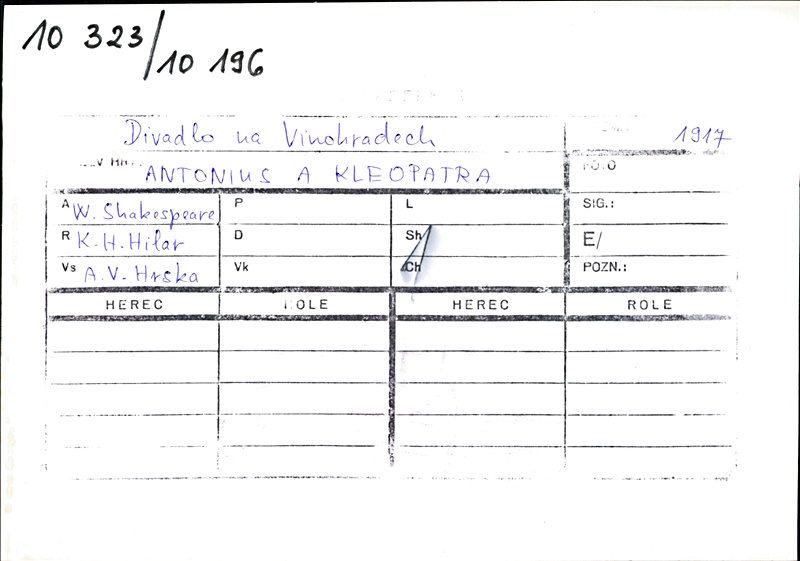 10 323/10 196
Divadlo na Vinohradech 1917
ANTONIUS A KLEOPATRA FOTO
A W. Shakespeare P L SIG.:
R K. H. Hilar D Sh E/
Vs A. V. Hrska Vk Ch POZN.:
HEREC ROLE HEREC ROLE